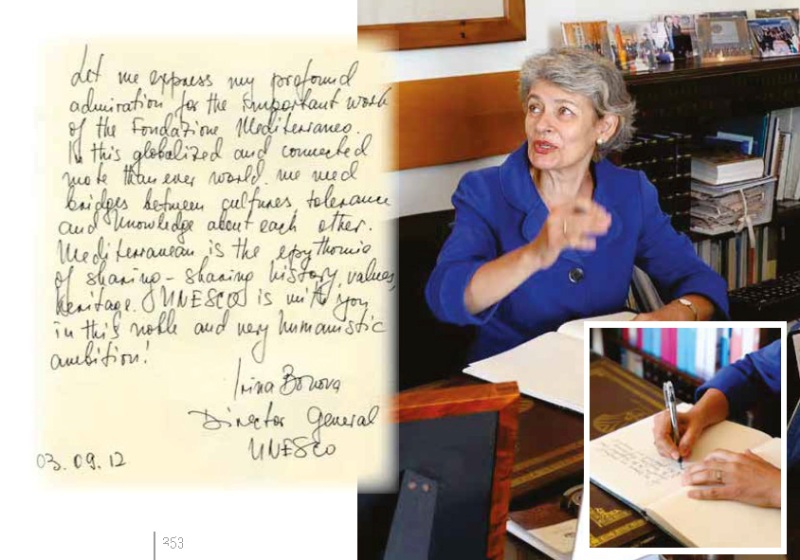 Let me express my profound
admiration for the important work
of the Fondazione Mediterraneo.
In this globalized and connected
more than ever world, we need
bridges between cultures, tolerance
and knowledge about each other.
Mediterranean is the epythomie
of sharing - sharing history, values,
heritage. UNESCO is with you
in this noble and very humanistic
ambition!
Irina Bokova
Director General
UNESCO
03.09.12
353